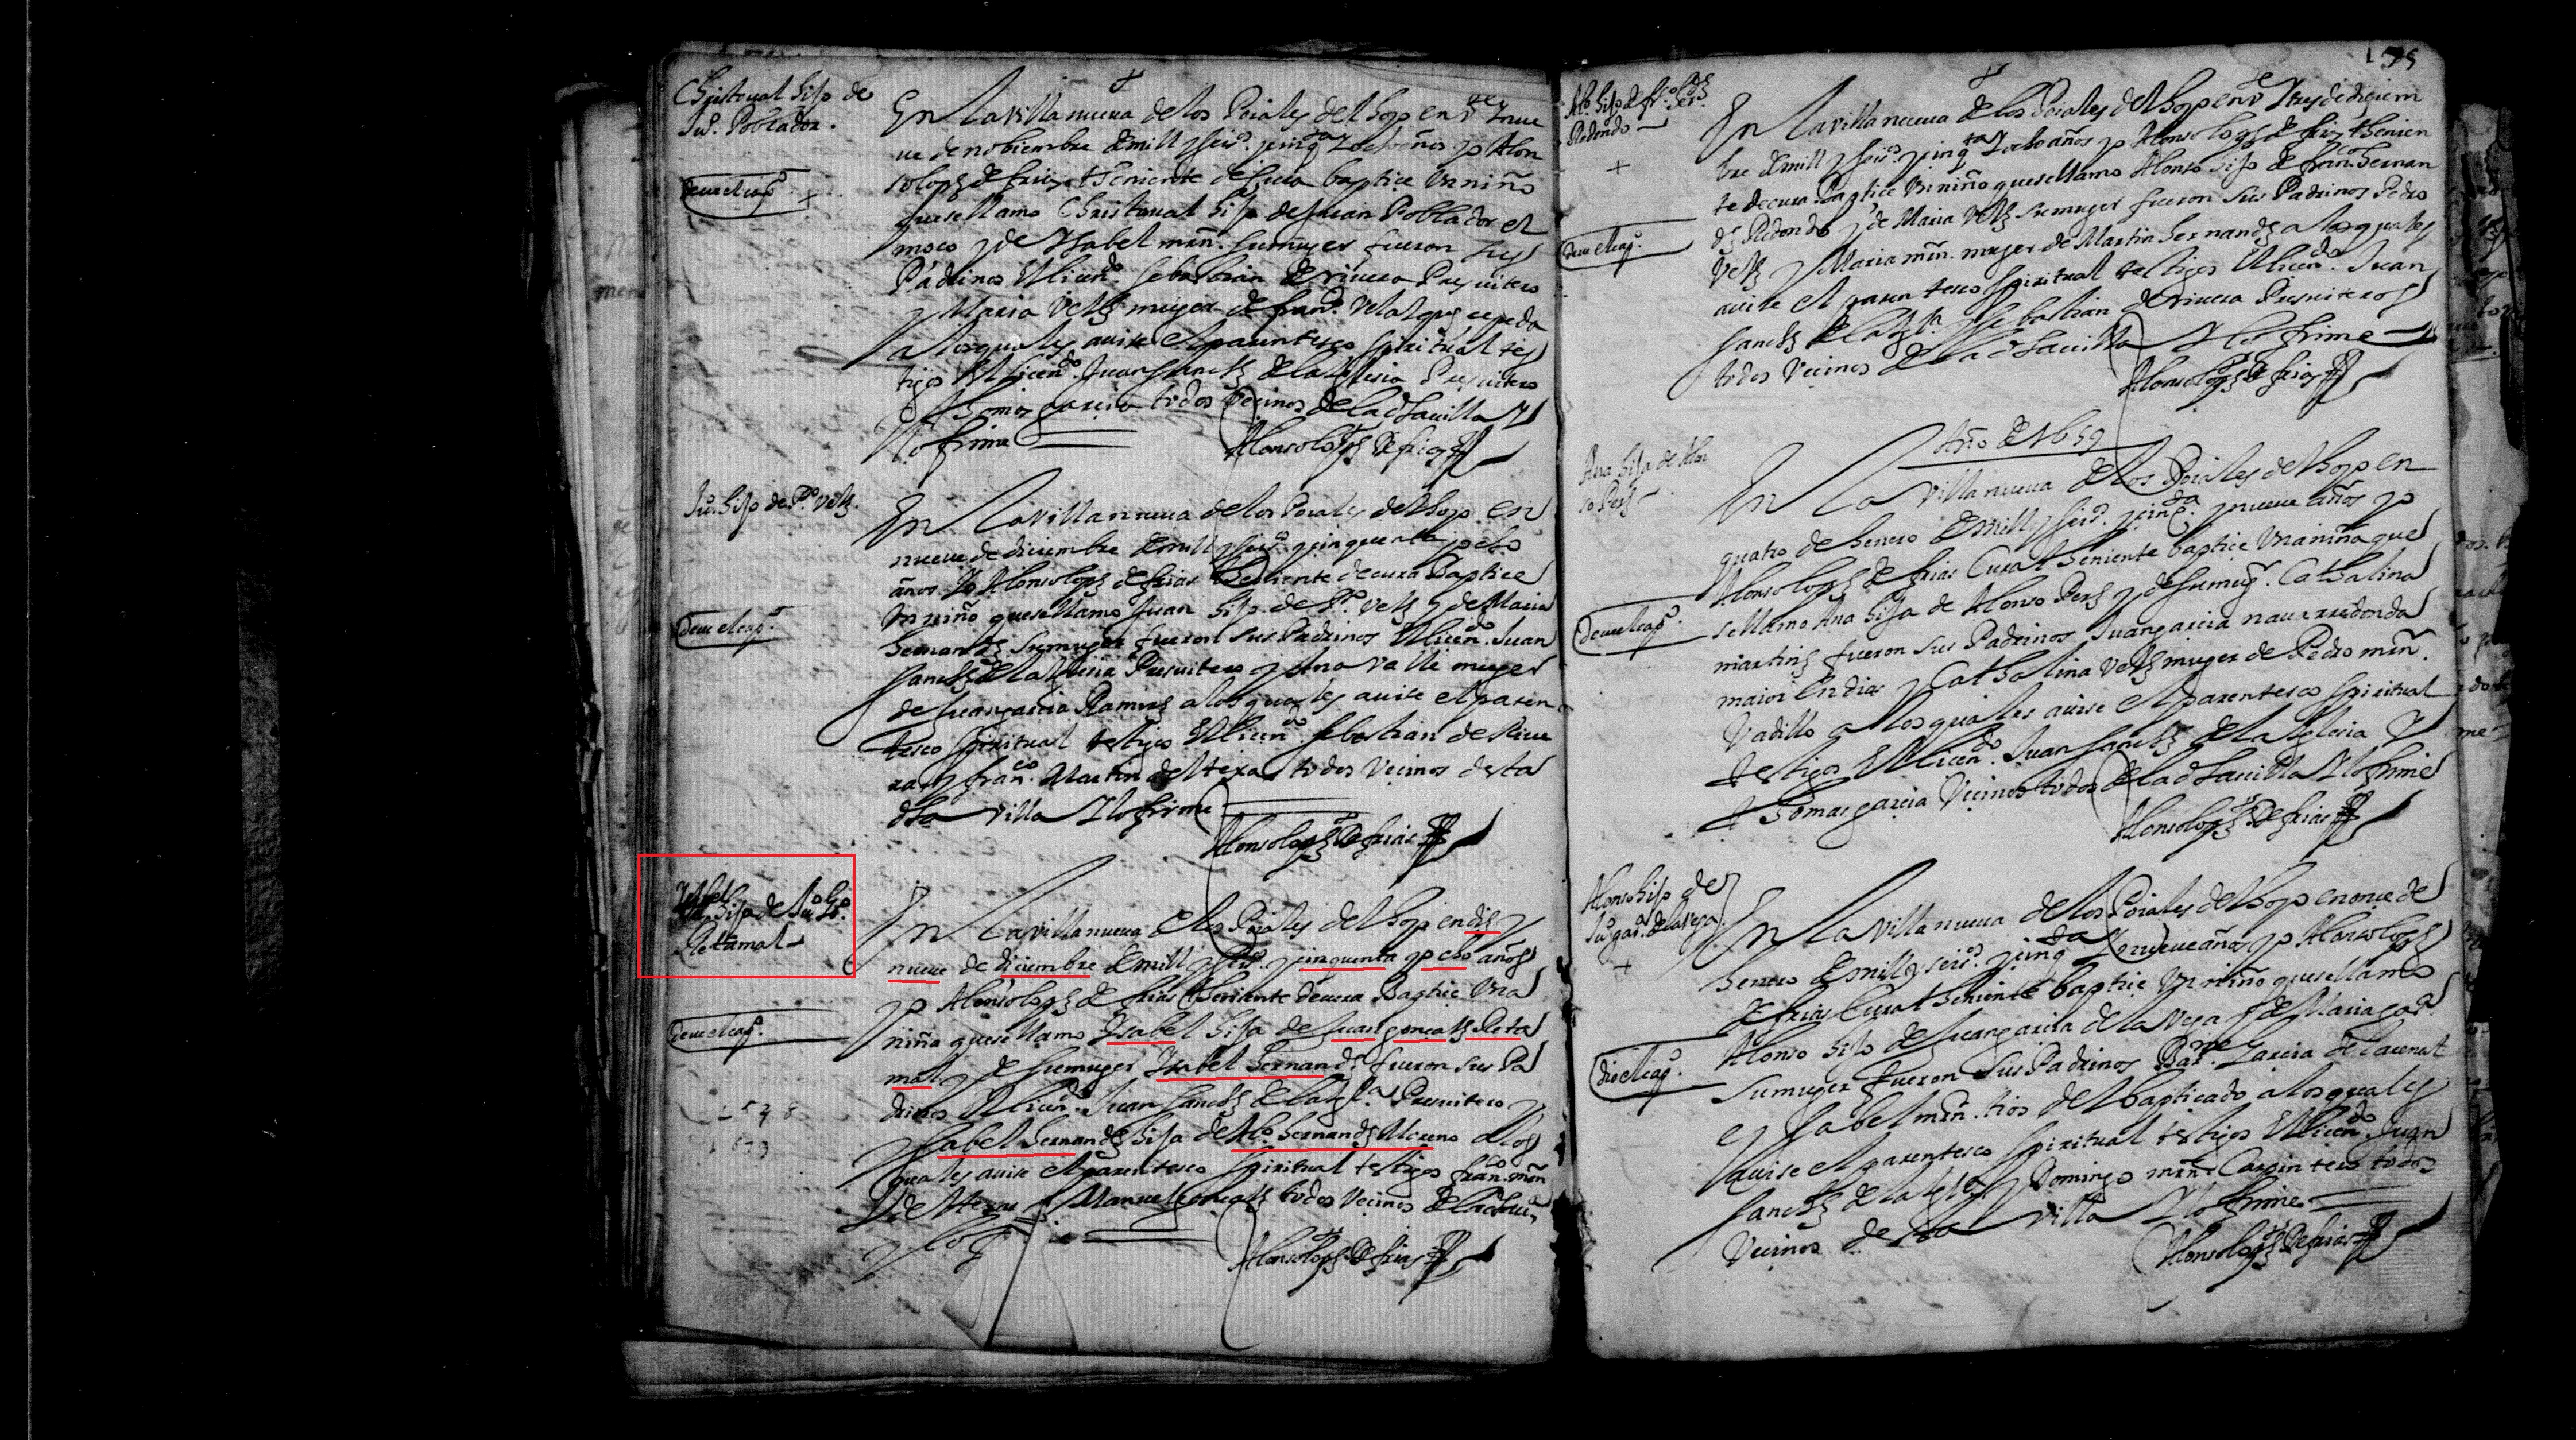 Christoual hijo de
Juº Poblador.
En la villa nueva de los Poiales del hoyo en vte y nue
ue de nobiembre de mill y seisº y cinqta y ocho años yo Alon
so lopz de frias theniente de cura baptice un niño
que se llamo Christoual hijo de Juan Poblador el
moço y de Ysabel mrn. su muger fueron sus
Padrinos El licendo Sebastian de riuera Presuitero
y Maria Velz muger de franco Velazquez cepeda
a los quales auise el parentesco spiritual tes
tigos el licendo Juan Sanchz de la Iglesia Presuitero
y thomas garcia todos Vecinos de la dha uilla Y
lo firme
Alonso lopz De frias
deue el capº
Juº hijo de Pº Velz.
En la villa nueua de los Poiales del hoyo en
nueue de diciembre de mill y seisº y cinquenta y ocho
años Yo Alonso lopz de frias theniente de cura Baptice
un niño que se llamo Juan hijo de Pº Velz y de Maria
hernandz su muger fueron sus Padrinos El licendo Juan
Sanchz de la Iglesia Presuitero y Ana Valle muger
de Juan garcia Ramirz a los quales auise el paren
tesco spiritual testigos El licendo Sebastian de Riue
ra y franco Martin del texar todos Vecinos desta
dha villa Y lo firme
Alonso lopz De frias
deue el capº
Ysabel
hija de Juº gº
Retamal
En la villa nueua de los Poiales del hoyo en diez y
nueue de diciembre de mill y seisº y cinquenta y ocho años
yo Alonso lopz de frias theniente de cura Baptice Una
niña que se llamo Ysabel hija de Juan gonçalz Reta
mal y de su muger Ysabel hernandz fueron sus Pa
drinos El licendo Juan Sanchz de la Iglª Presuitero y
Ysabel hernandz hija de Alº hernandz Moreno a los
quales auise el parentesco spiritual testigos franco mrn
y Manuel gonçalz todos Vecinos de la dha uiª
y lo fe
Alonso lopz De frias
deue el capº
1578
195
Alº hijo de frco hdz
Redondo
En la villa nueua de los Poiales del hoyo en vte Y tres de diciem
bre de mill y seisº y cinqta Y ocho años yo Alonso lopz de frias thenien
te de cura Baptice Un niño que se llamo Alonso hijo de franco hernan
dz Redondo y de Maria Velz su muger fueron sus Padrinos Pedro
Velz y Maria mrn. muger de Martin hernandz a los quales
auise el parentesco spiritual testigos El licendo Juan
Sanchz de la Iglª y Sebastian de riuera Presuiteros
todos Vecinos de la dha uilla Y lo firme
Alonso lopz De frias
deue el capº
Año de 1659
Ana hija de Alon
so Perz
En la villa nueua de los Poiales del hoyo en
quatro de henero de mill y seisº y cinqta y nueue años yo
Alonso lopz de frias Cura theniente baptice Una niña que
se llamo Ana hija de Alonso Perz y de su mugr. Cathalina
martinz fueron sus Padrinos Juan garcia nauarredonda
maior en dias y Cathalina Velz muger de Pedro mrn.
Vadillo a los quales auise el parentesco spiritual
testigos El licendo Juan Sanchz de la Iglesia Y
thomas garcia Vecinos todos de la dha uilla Y lo firme
Alonso lopz De frias
deue el capº
Alonso hijo de
Juº garª de la Vega
En la villa nueua de los Poiales del hoyo en once de
henero de mill y seisº y cinqta Y nueue años yo Alonso lopz
de frias Cura theniente baptice Un niño que se llamo
Alonso hijo de Juan garcia de la Vega y de Maria garª
su muger fueron sus Padrinos Barme Garcia
e Ysabel mrn. tios del baptiçado a los quales
auise el parentesco spiritual testigos El licendo Juan
Sanchz de la Iglª y Domingo mrn Carpintero todos
Vecinos de dha villa Y lo firme
Alonso lopz De frias
dio el capº